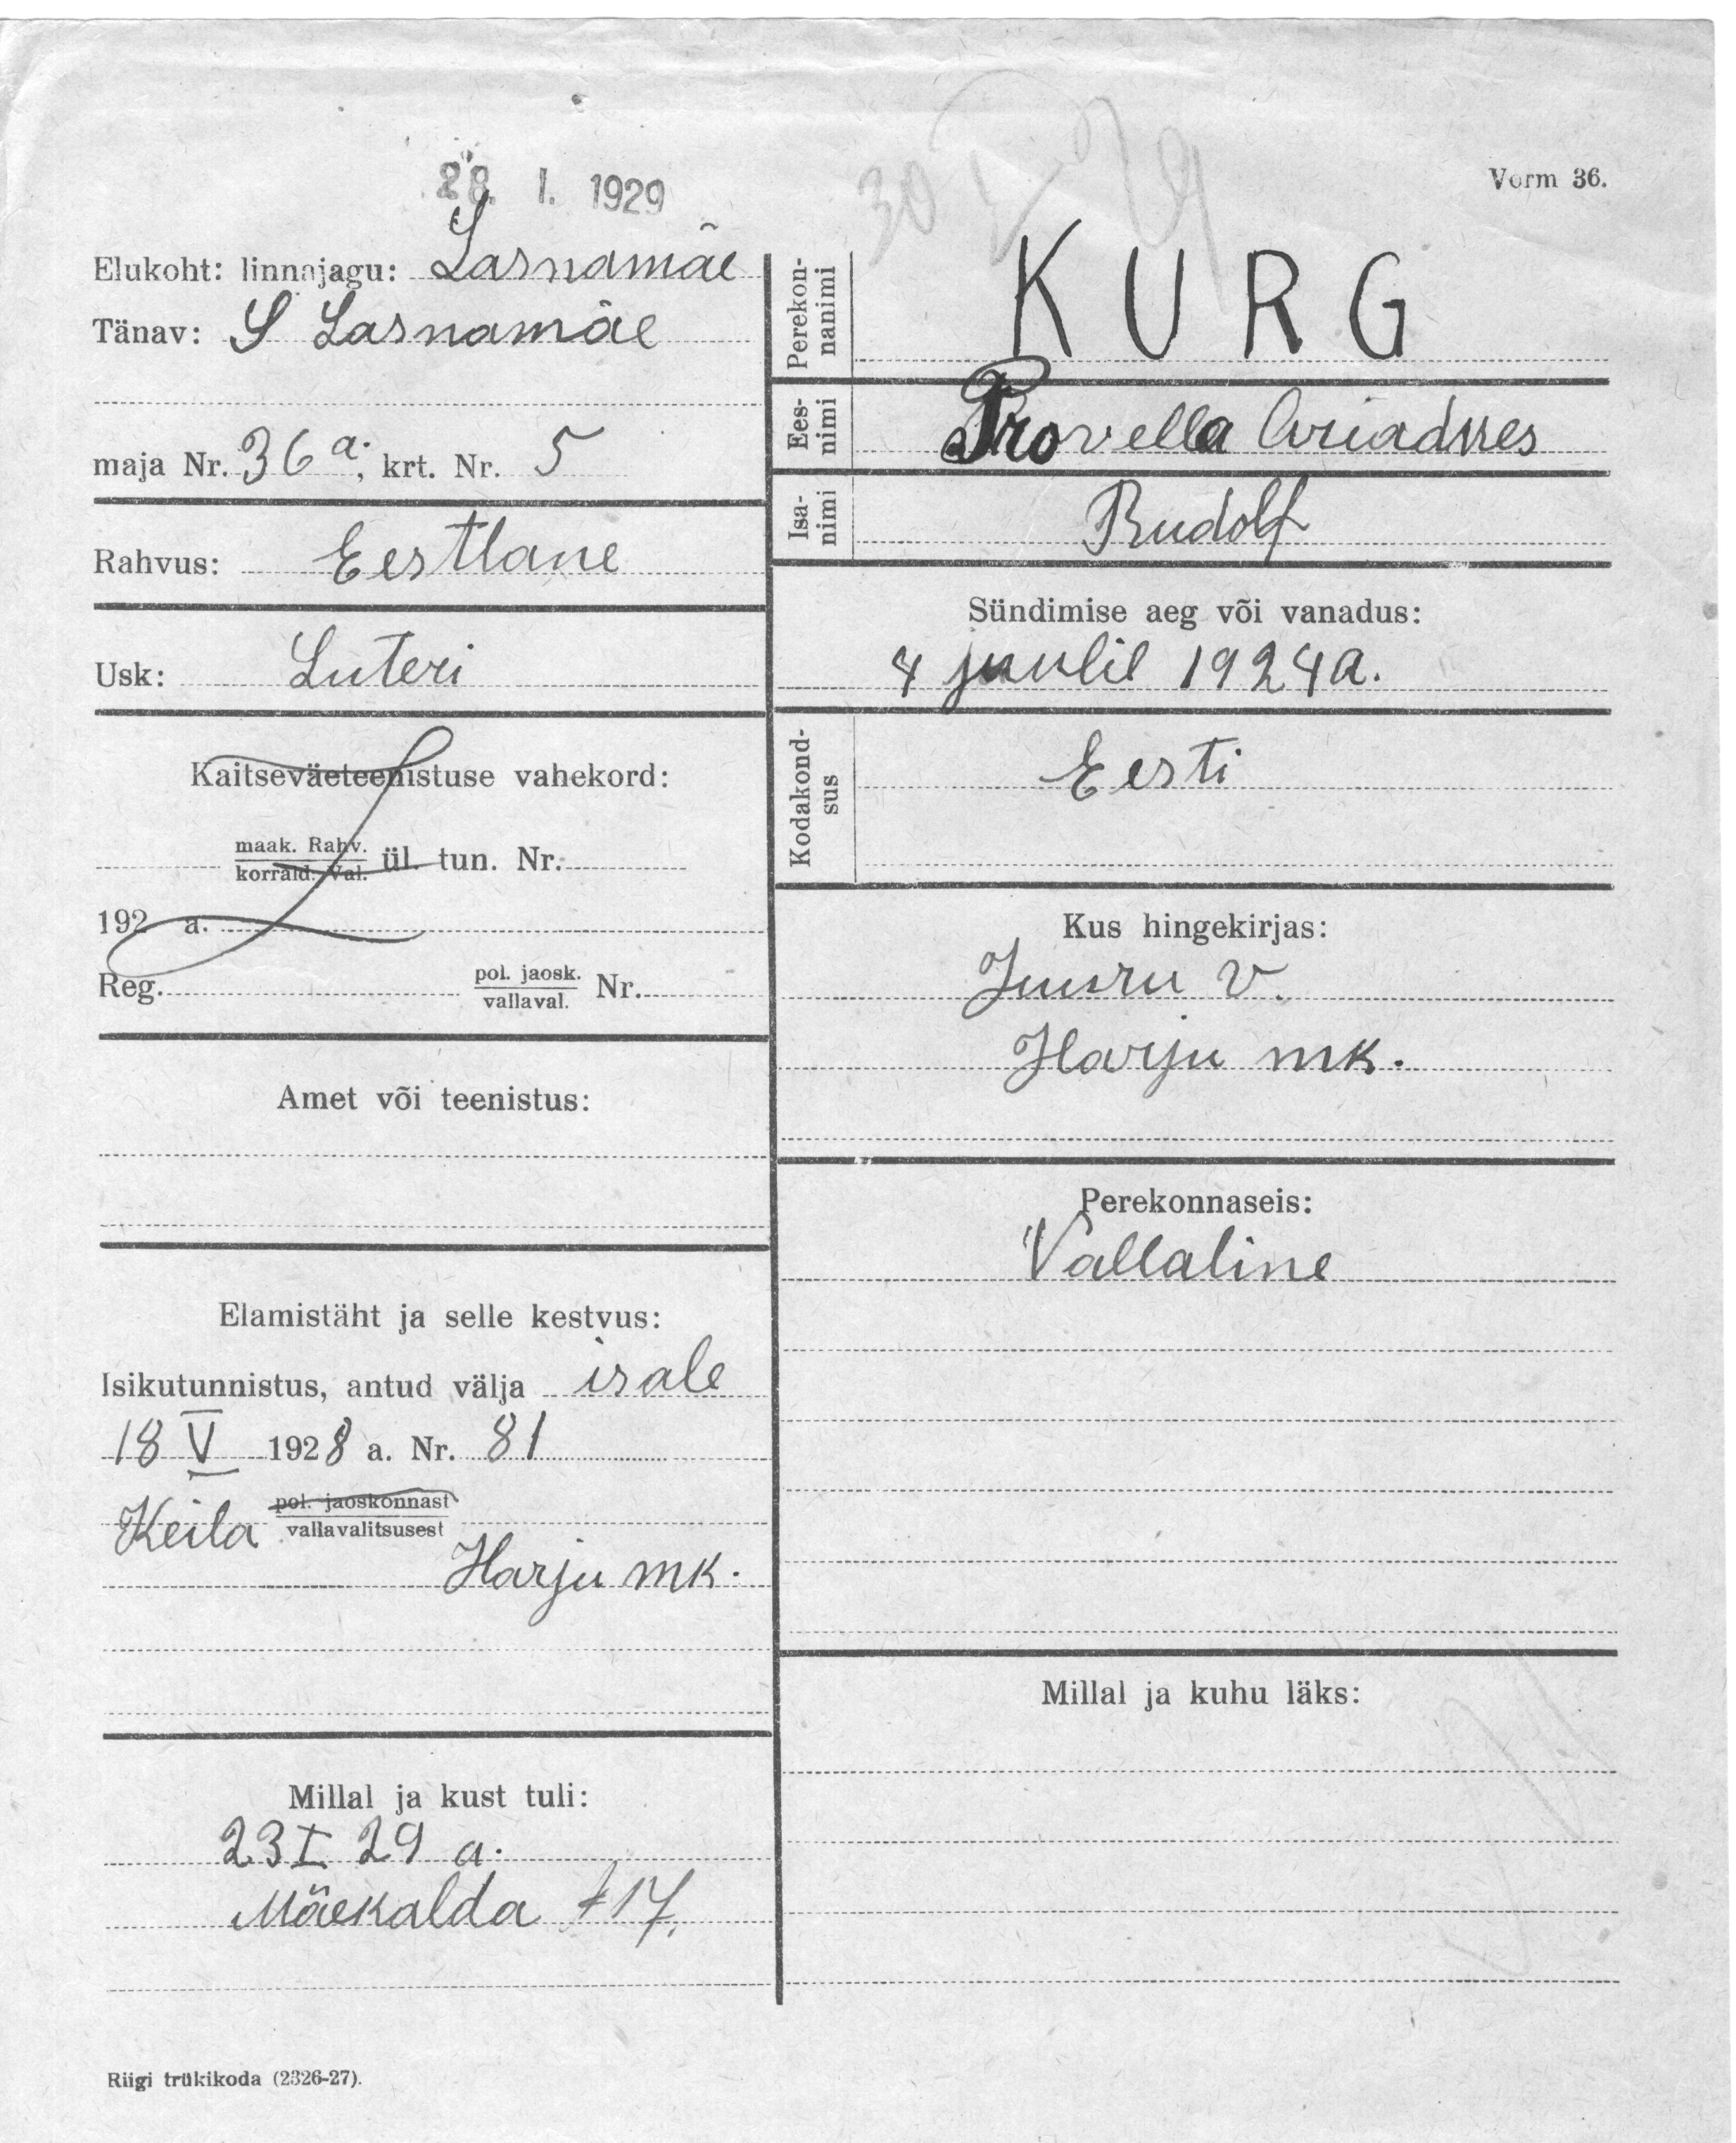 28. I. 1929
30 I 29
Vorm 36.
Elukoht: linnajagu: Lasnamäe
Tänav: S Lasnamäe
maja Nr. 36 a; krt. Nr. 5
Rahvus: Eestlane
Usk: Luteri
Kaitseväeteenistuse vahekord:
maak. Rahv.
korrald. Val. ül. tun. Nr.
192 a.
Reg. pol. jaosk.
vallaval. Nr.
Amet või teenistus:
Elamistäht ja selle kestvus:
Isikutunnistus, antud välja isale
18 V 1928 a. Nr. 81
Keila pol. jaoskonnast
vallavalitsusest
Harju mk.
Millal ja kust tuli:
23 I 29 a.
Mäekalda 17.
Riigi trükikoda (2326-27).
Perekon-
nanimi
KURG
Ees-
nimi
Provella Ariadnes
Isa-
nimi
Rudolf
Sündimise aeg või vanadus:
4 juulil 1924 a.
Kodakond-
sus
Eesti
Kus hingekirjas:
Juuru v.
Harju mk.
Perekonnaseis:
Vallaline
Millal ja kuhu läks: